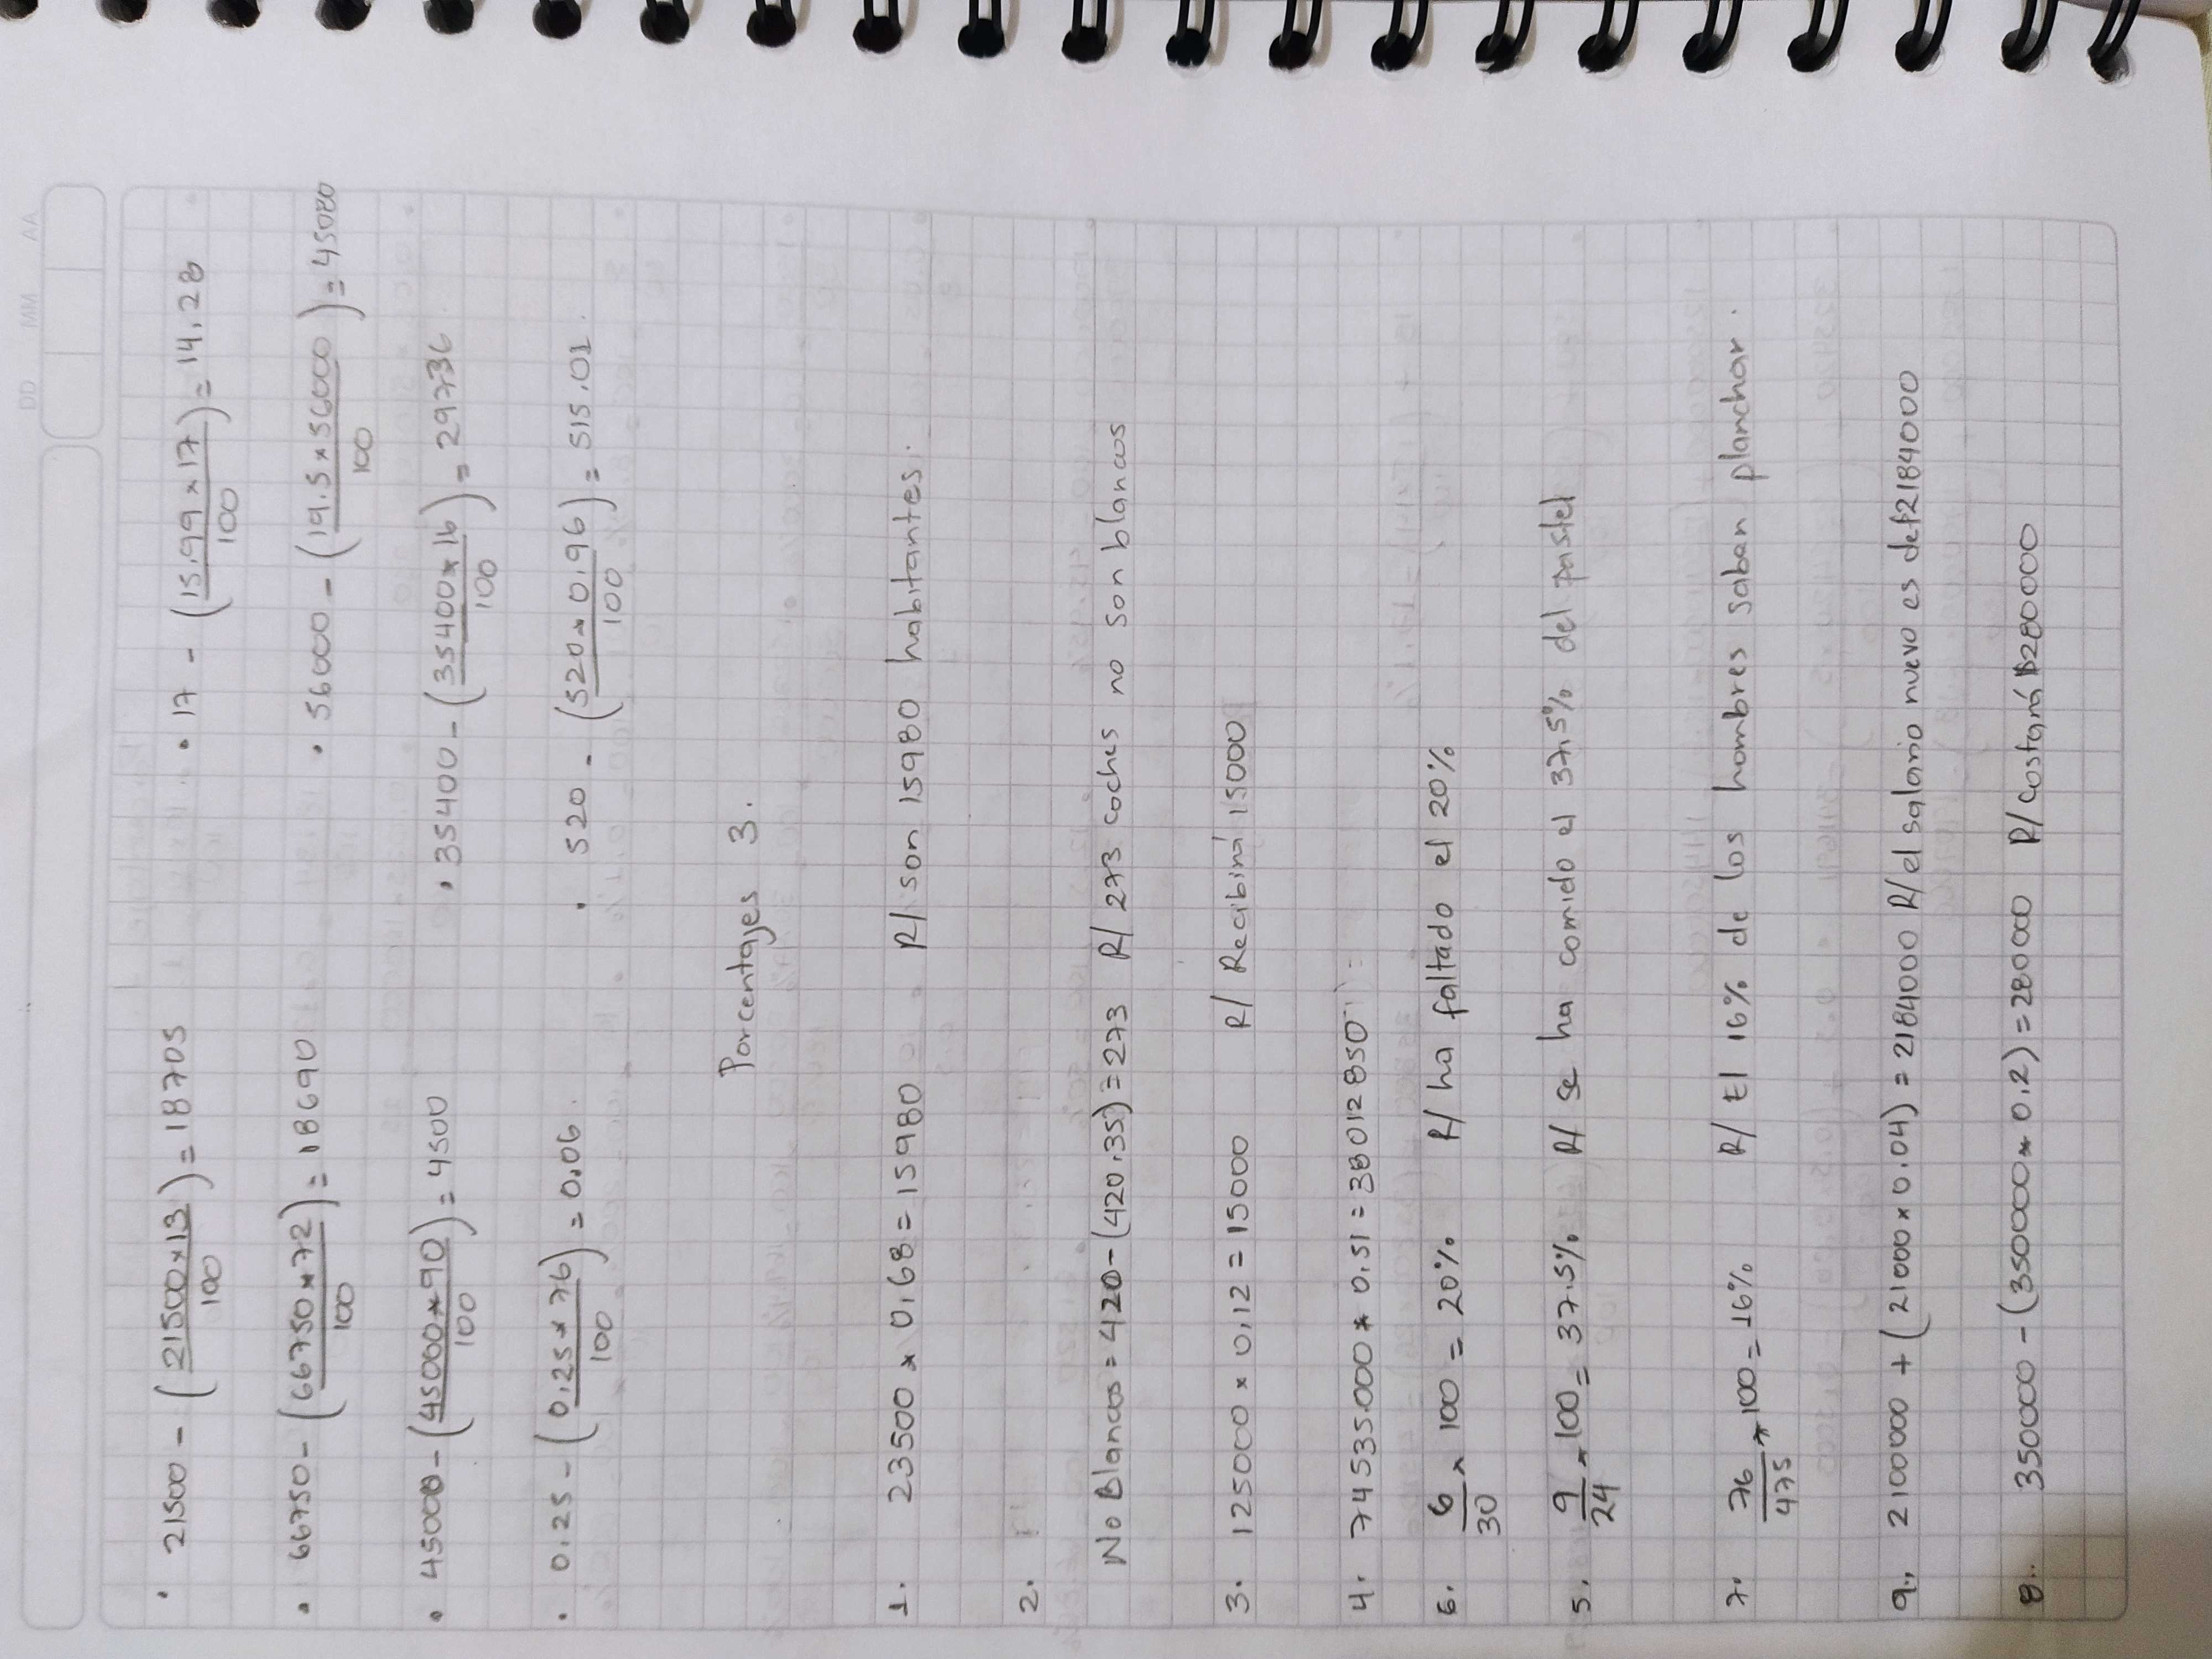 DD MM AA
• 21500 - (21500×13/100) = 18705 • 17 - (15.99×17/100) = 14.28
• 66750 - (66750×72/100) = 18690 • 56000 - (19.5×56000/100) = 45080
• 45000 - (45000×90/100) = 4500 • 35400 - (35400×16/100) = 29736
• 0.25 - (0.25×76/100) = 0.06. • 520 - (520×0.96/100) = 515.01.
Porcentajes 3.
1. 23500 × 0.68 = 15980 R/ son 15980 habitantes.
2.
No Blancos = 420 - (420.35) = 273 R/ 273 coches no son blancos
3. 125000 × 0.12 = 15000 R/ Recibirá 15000
4. 74535.000 × 0.51 = 38012850
6. 6/30 × 100 = 20% R/ ha faltado el 20%
5. 9/24 × 100 = 37.5% R/ se ha comido el 37.5% del pastel
7. 76/475 × 100 = 16% R/ El 16% de los hombres saban planchar.
9. 2100000 + (21000×0.04) = 2184000 R/ el salario nuevo es de $2184000
8. 350000 - (350000 × 0.2) = 280000 R/ costará $280000